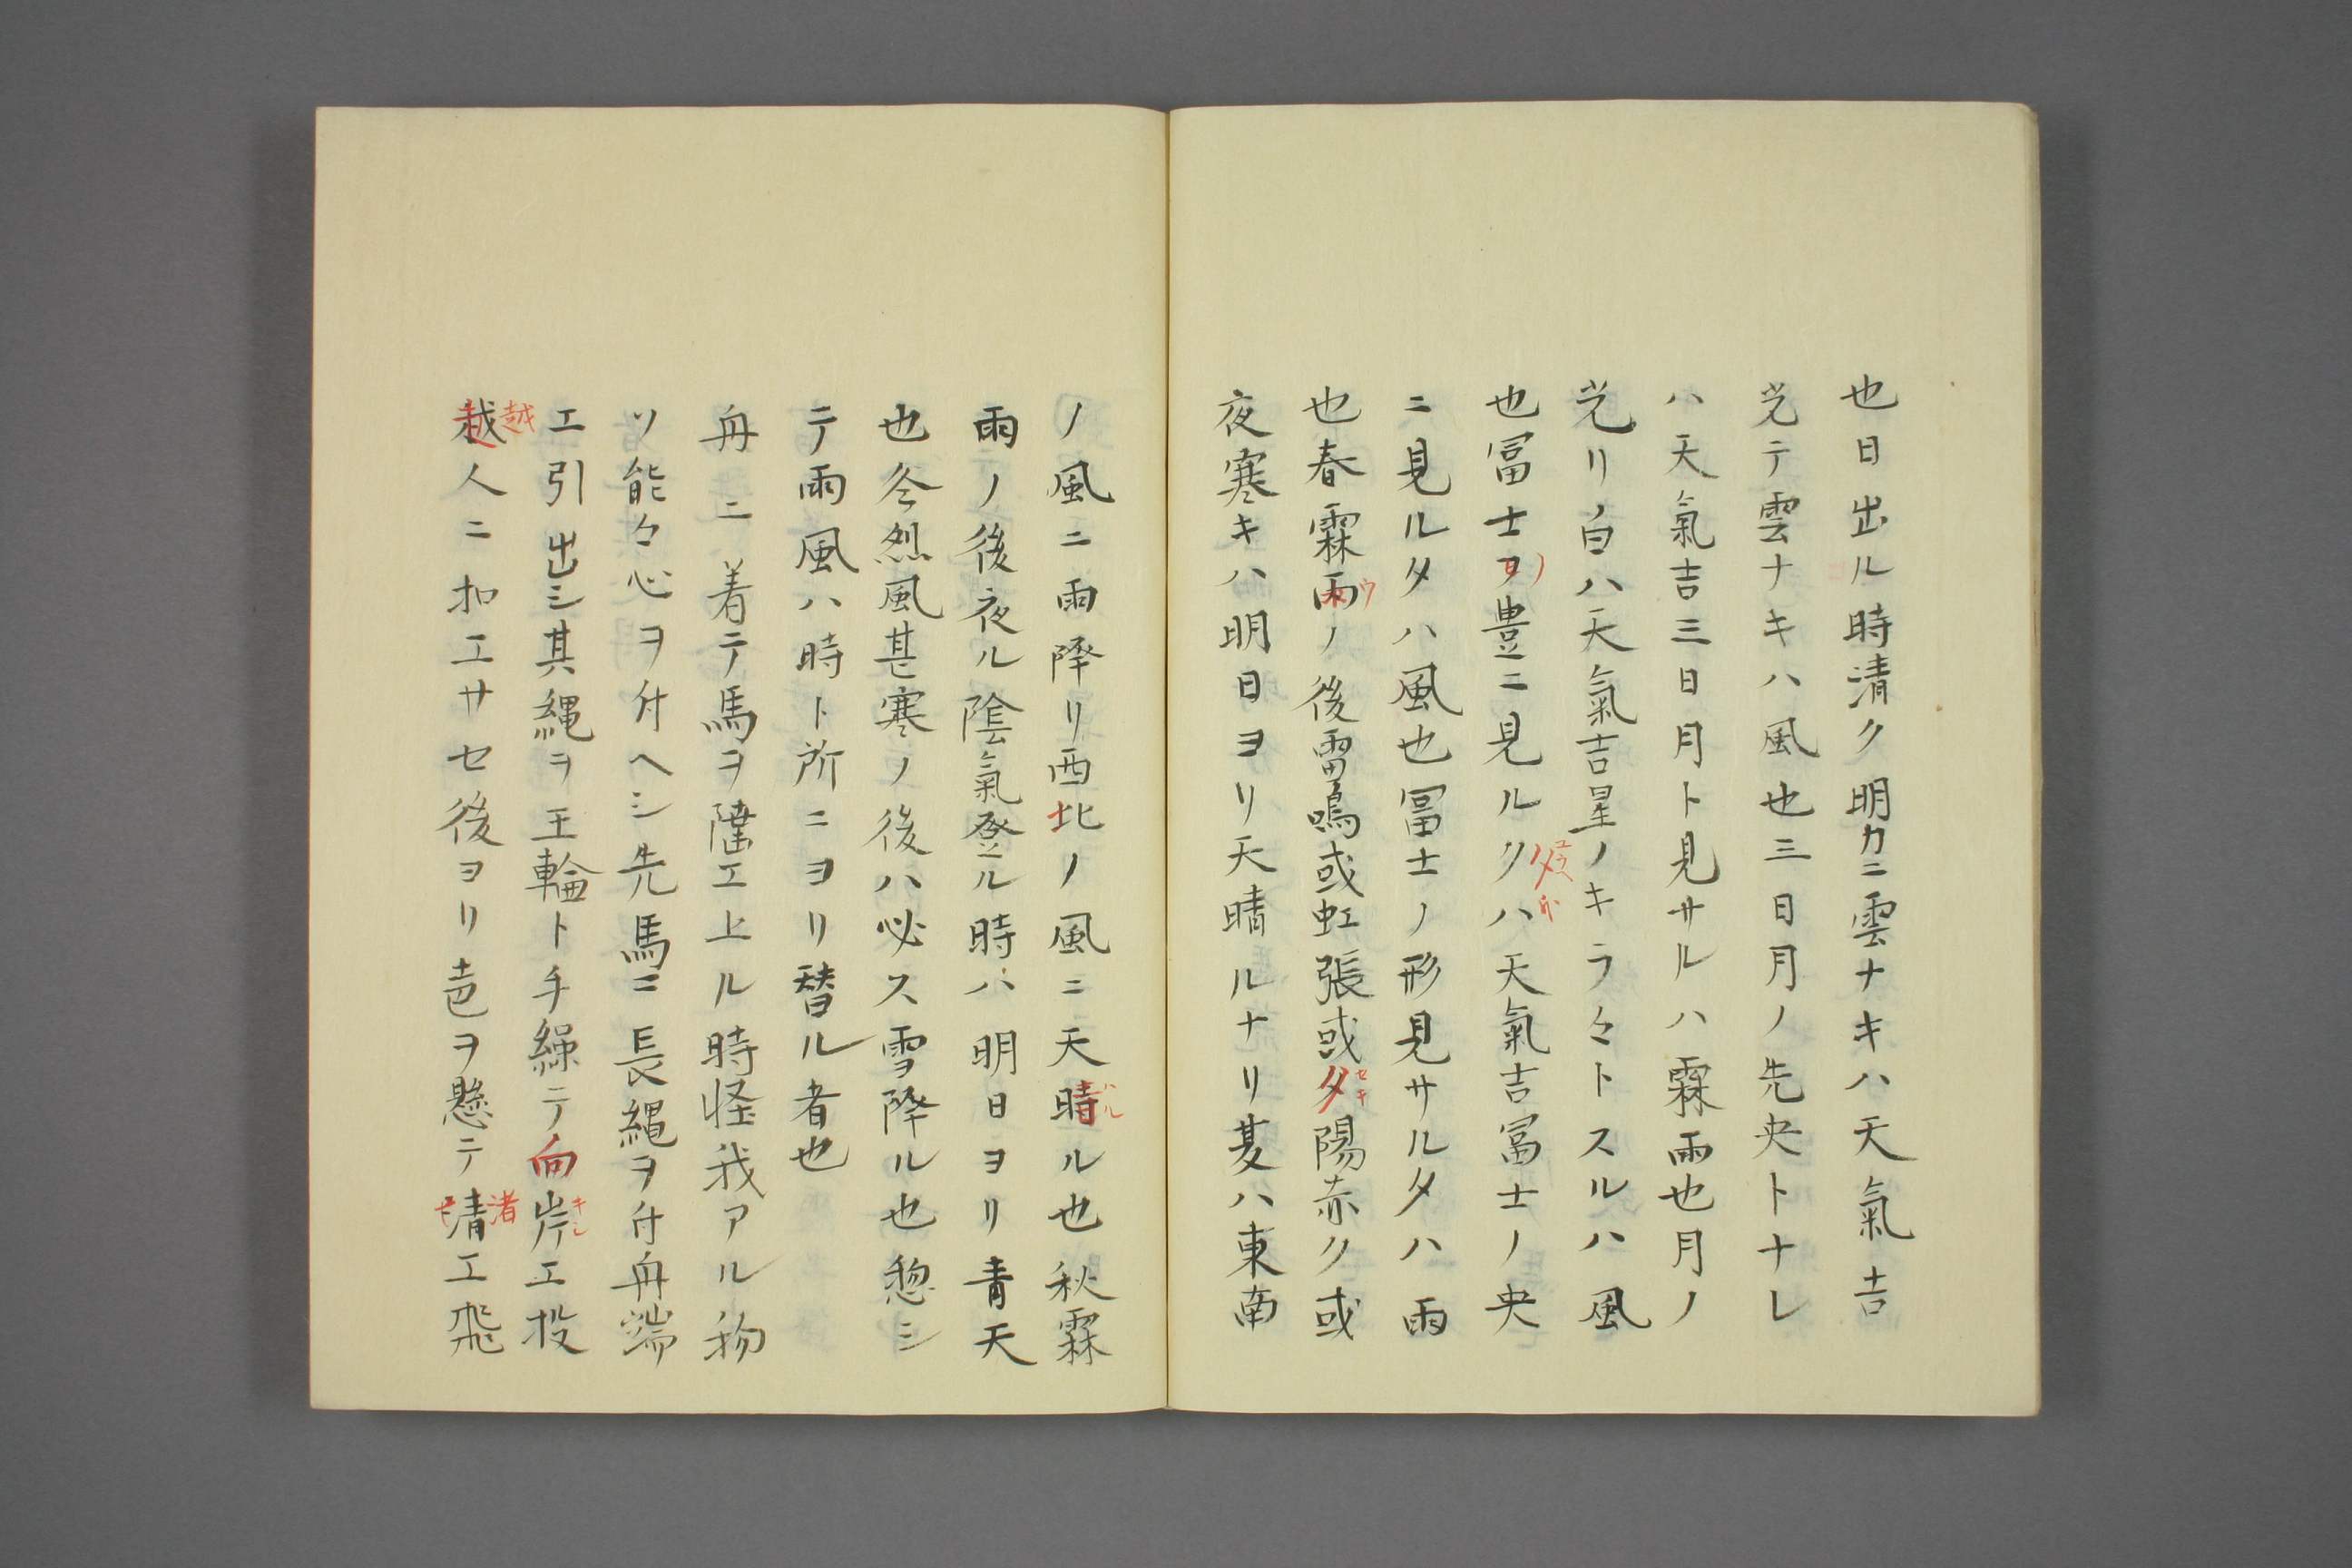 也日出ル時清ク明カニ雲ナキハ天氣吉
光テ雲ナキハ風也三日月ノ先央トナレ
ハ天氣吉三日月ト見サルハ霖雨也月ノ
光リノ白ハ天氣吉星ノキラ々トスルハ風
也冨士ヲ豊ニ見ルクハ天氣吉冨士ノ央
ニ見ルタハ風也冨士ノ形見サルタハ雨
也春霖雨ノ後雷鳴或虹張或夕陽赤ク或
夜寒キハ明日ヨリ天晴ルナリ夏ハ東南
ノ風ニ雨降リ西北ノ風ニ天晴ル也秋霖
雨ノ後夜ル陰氣登ル時ハ明日ヨリ青天
也冬烈風甚寒ノ後ハ必ス雪降ル也惣シ
テ雨風ハ時ト所ニヨリ替ル者也
舟ニ着テ馬ヲ陸エ上ル時怪我アル物
ソ能々心ヲ付ヘシ先馬ニ長縄ヲ付舟端
エ引出シ其縄ヲ王輪ト手繰テ向岸エ投
越人ニ扣エサセ後ヨリ声ヲ懸テ渚エ飛